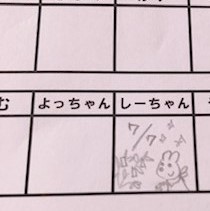 む よっちゃん しーちゃん
7/7